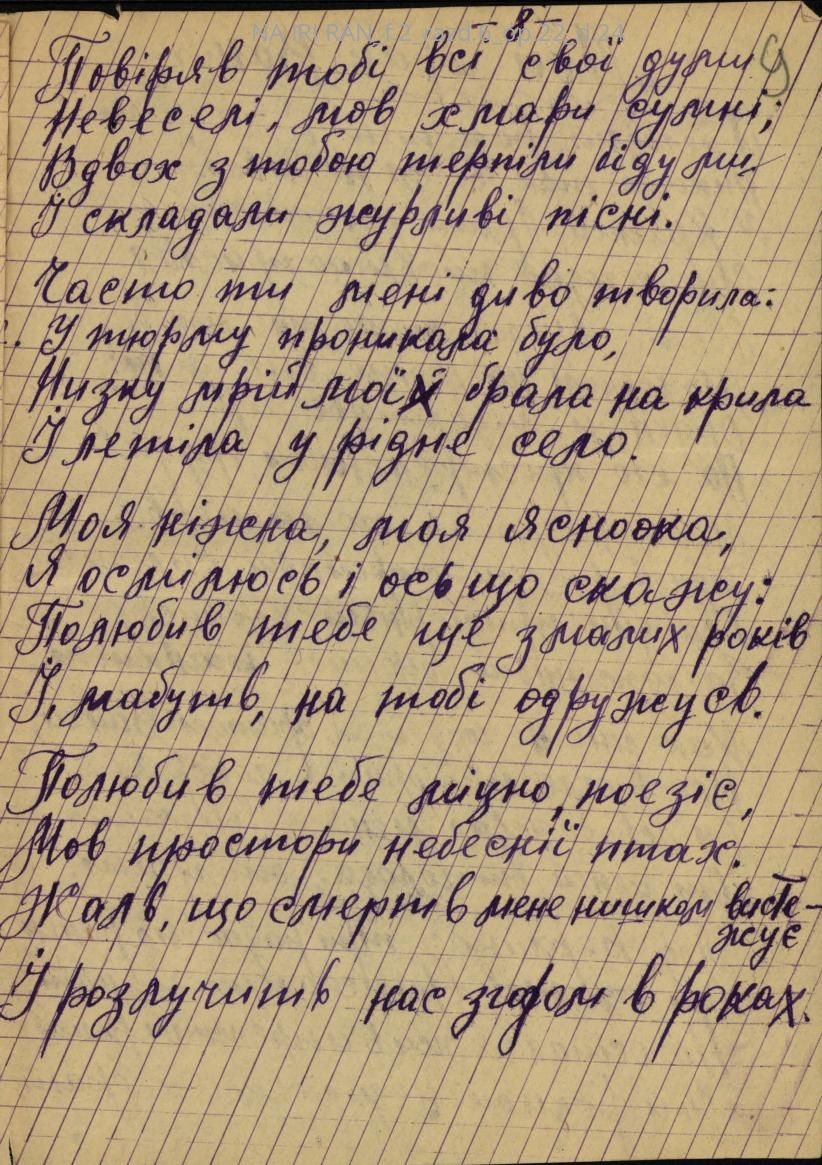 - 8 -
NA IRI RAN, f.2, razd.6, op.22, d.24
9
Повіряв тобі всі свої думи
Невеселі, мов хмари сумні;
Вдвох з тобою терпіли біду ми
Й складали журливі пісні.
Часто ти мені диво творила:
У тюрму проникала було,
Низку мрій моїх брала на крила
Й летіла у рідне село.
Моя ніжна, моя ясноока,
Я осмілюсь і ось що скажу:
Полюбив тебе ще з малих років
Й, мабуть, на тобі одружусь.
Полюбив тебе міцно, поезіє,
Мов простори небеснії птах.
Жаль, що смерть мене нишком висте-
жує
Й розлучить нас згодом в роках.